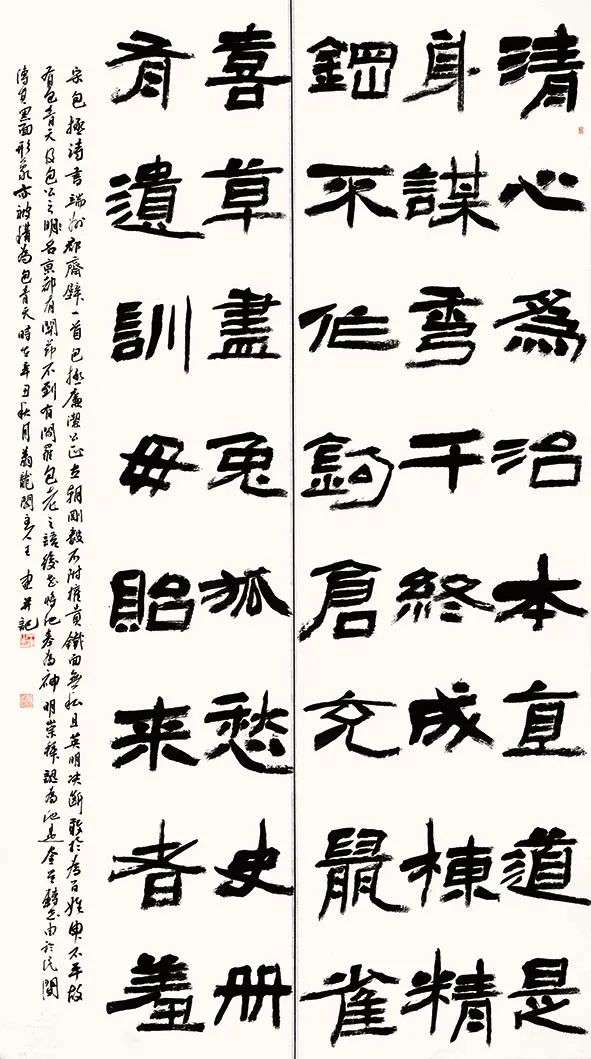 清心為治本直道是
身謀秀干終成棟精
鋼不作鉤倉充鼠雀
喜草盡兔狐愁史册
有遺訓毋貽来者羞
宋包拯詩書端州郡齋壁一首包拯廉潔公正立朝剛毅不附權貴鐵面無私且英明決斷敢於為百姓申不平故
有包青天及包公之明名京都有關節不到有閻羅包老之語後世將他奉為神明崇拜認為他是奎星轉世由於民間
傳其黑面形象亦被稱為包青天時在辛丑秋月 王 并記